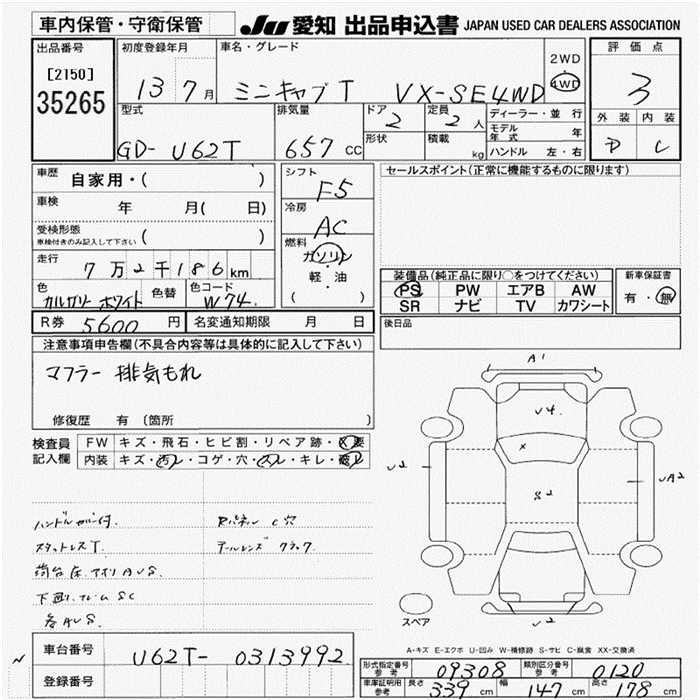 車内保管・守衛保管 JU 愛知 出品申込書 JAPAN USED CAR DEALERS ASSOCIATION
出品番号 初度登録年月 車名・グレード 2WD 評価点
[2150] 35265 13 7月 ミニキャブT VX-SE4WD 4WD 3
型式 排気量 ドア 定員 ディーラー・並行 外装 内装
GD-U62T 657cc 2 2人 モデル年式 年 D C
形状 積載 kg ハンドル 左・右
車歴 自家用・( ) シフト F5 セールスポイント(正常に機能するものに限ります)
車検 年 月( 日) 冷房 AC
受検形態 車検付きのみ記入して下さい ( ) 燃料 ガソリン
走行 7万2千186km 軽・油 ( )
装備品(純正品に限り○をつけてください) 新車保証書
PS PW エアB AW 有・無
SR ナビ TV カワシート
色 カルガリーホワイト 色替 色コード W74
R券 5600円 名変通知期限 月 日 後日品
注意事項申告欄(不具合内容等は具体的に記入して下さい)
マフラー 排気もれ
修復歴 有 (箇所 )
検査員記入欄 FW キズ・飛石・ヒビ割・リペア跡・X要
内装 キズ・汚レ・コゲ・穴・スレ・キレ・破レ
ハンドルカバー付 Rパネル C 穴
スタットレスT テールレンズ クラック
荷台床 アオリ AUS
下廻リ フレーム SC
各AUS
A1
U4
X
U2
S2
UA2
U2
スペア
A-キズ E-エクボ U-凹み W-補修跡 S-サビ C-腐食 XX-交換済
車台番号 U62T-0313992
登録番号
形式指定番号 参考 09308 類別区分番号 参考 0120
車庫証明用 参考 長さ 339cm 幅 147cm 高さ 178cm